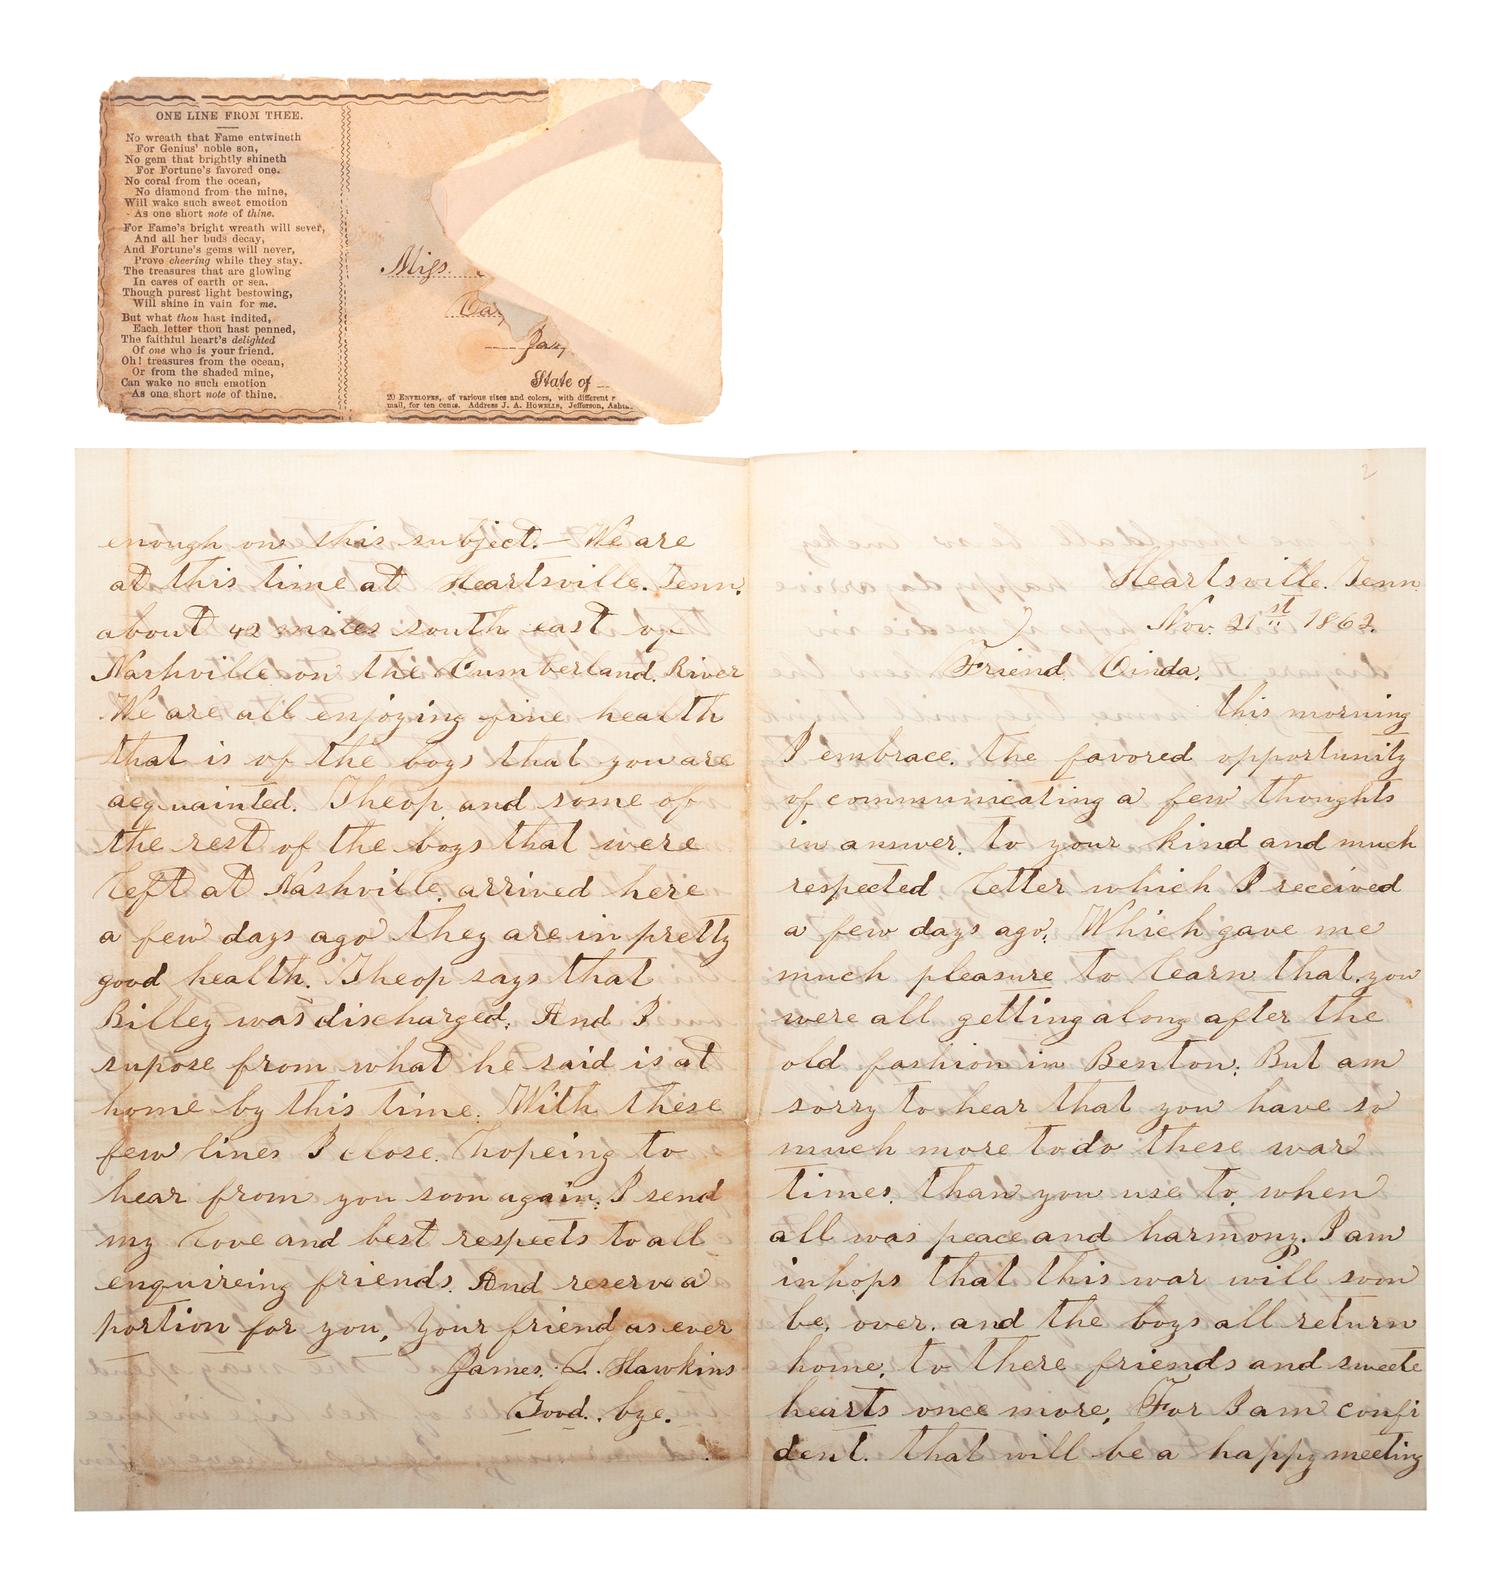 ONE LINE FROM THEE.
No wreath that Fame entwineth
For Genius' noble son,
No gem that brightly shineth
For Fortune's favored one.
No coral from the ocean,
No diamond from the mine,
Will wake such sweet emotion
As one short note of thine.
For Fame's bright wreath will sever,
And all her buds decay,
And Fortune's gems will never,
Prove cheering while they stay.
The treasures that are glowing
In caves of earth or sea.
Though purest light bestowing,
Will shine in vain for me.
But what thou hast indited,
Each letter thou hast penned,
The faithful heart's delighted
Of one who is your friend.
Oh! treasures from the ocean,
Or from the shaded mine,
Can wake no such emotion
As one short note of thine.
Miss.
State of
20 Envelopes, of various sizes and colors, with different
mail, for ten cents. Address J. A. Howells, Jefferson, Ashta
2
Heartsville. Tenn
Nov. 21st 1862.
Friend Cinda,
this morning
I embrace. the favored opportunity
of communicating a few thoughts
in answer. to your kind and much
respected letter which I received
a few days ago. Which gave me
much pleasure to learn that you
were all getting along after the
old fashion in Benton. But am
sorry to hear that you have so
much more to do these war
times. than you use to, when
all was peace and harmony. I am
in hops that this war will soon
be, over. and the boys all return
home, to there friends and sweete
hearts once more, For I am confi
dent. that will be a happy meeting
enough on this subject. — We are
at this time at Heartsville. Tenn.
about 42 miles south east of
Nashville on the Cumberland River
We are all enjoying fine health
that is of the boys that you are
acquainted. Theop. and some of
the rest of the boys that were
left at Nashville. arrived here
a few days ago they are in pretty
good health. Theop says that
Billey was discharged. And I
supose from what he said is at
home by this time. With these
few lines I close. hopeing to
hear from you soon again. I send
my love and best respects to all
enquireing friends. And reserve a
portion for you, Your friend as ever
James. L. Hawkins
Good. bye.